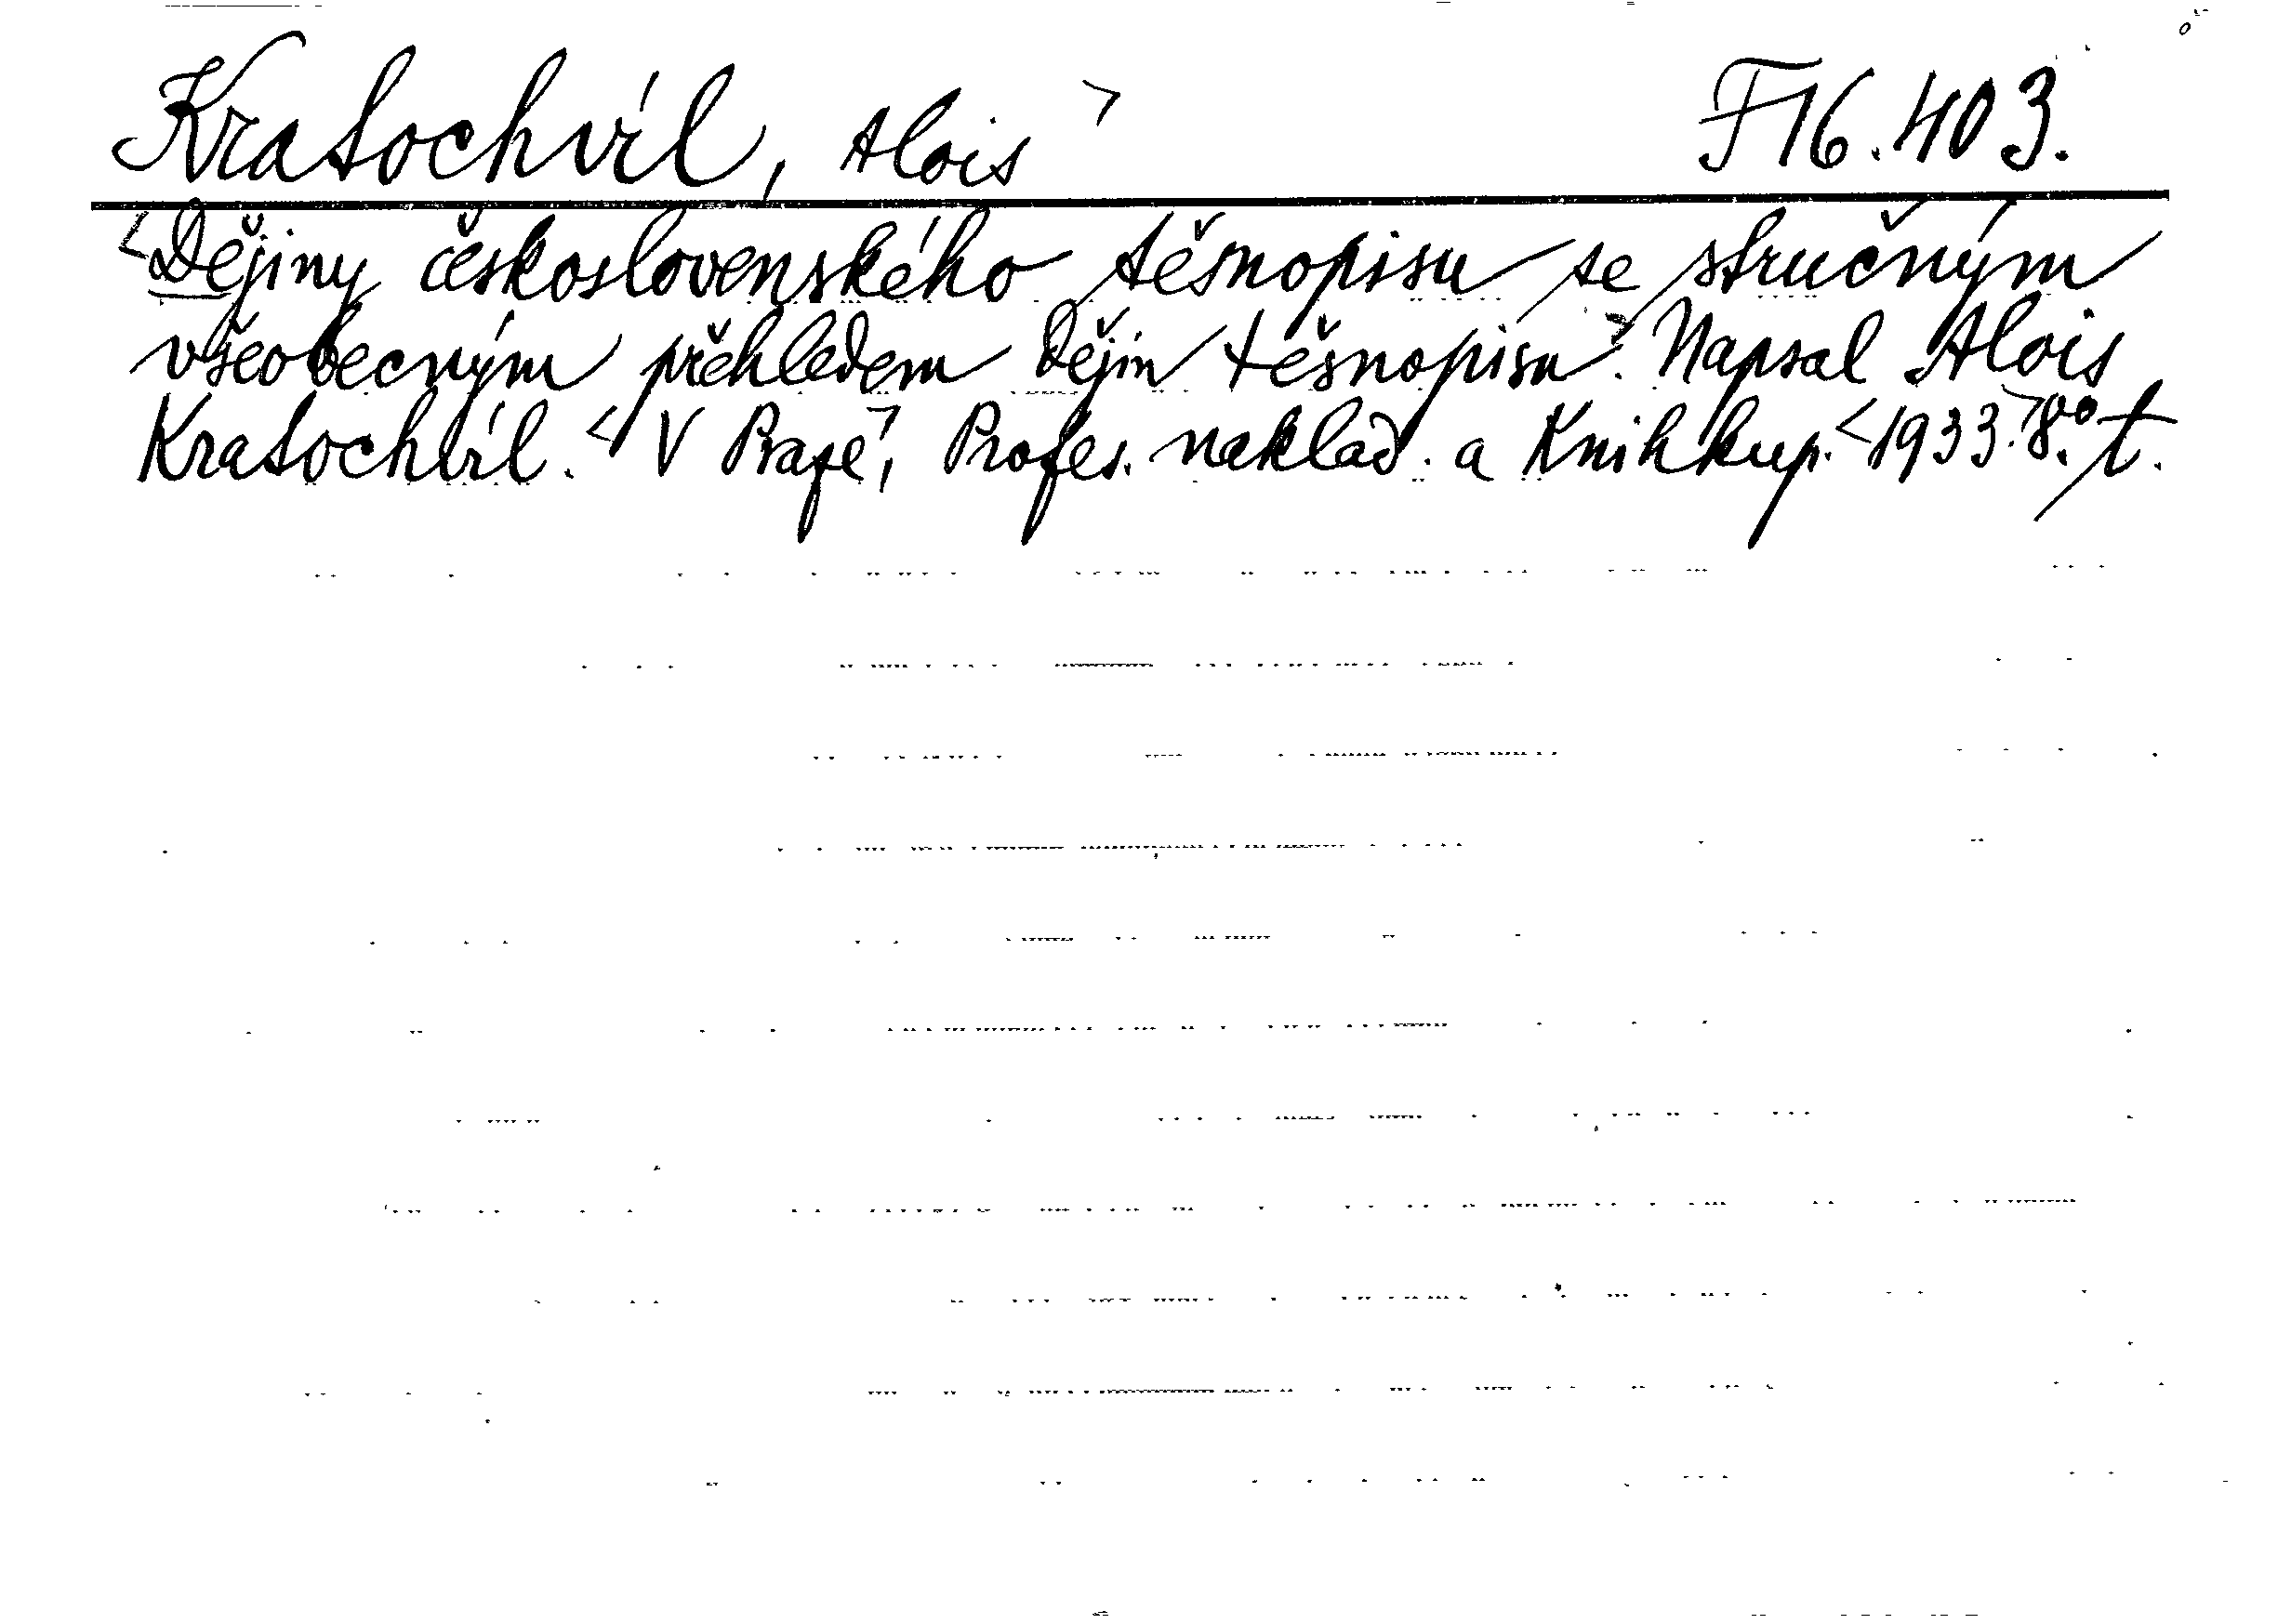 Kratochvíl, Alois> F16.403.
<Dějiny československého těsnopisu se stručným
všeobecným přehledem dějin těsnopisu>. Napsal Alois
Kratochvíl. <V Praze>, Profes. naklad. a Knihkup. <1933.>8.° t.